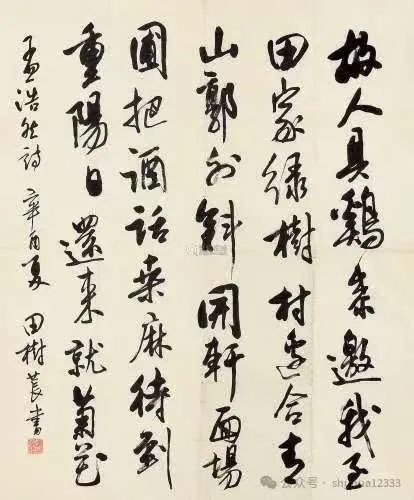 故人具鷄黍邀我至
田家綠樹村邊合青
山郭外斜開軒面場
圃把酒話桑麻待到
重陽日還來就菊花
孟浩然詩 辛酉夏 田樹萇書
公众号